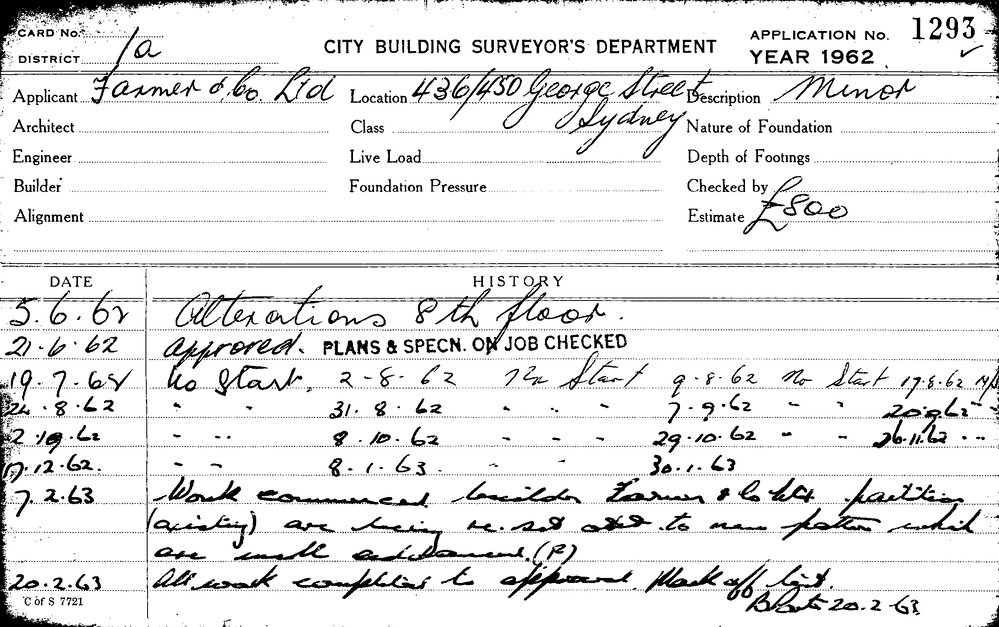 CARD No.
DISTRICT 1a
CITY BUILDING SURVEYOR'S DEPARTMENT
APPLICATION No. 1293
YEAR 1962
Applicant Farmer & Co. Ltd Location 436/450 George Street Sydney Description Minor
Architect Class Nature of Foundation
Engineer Live Load Depth of Footings
Builder Foundation Pressure Checked by
Alignment Estimate £800
DATE HISTORY
5.6.62 Alterations 8th floor.
21.6.62 approved. PLANS & SPECN. ON JOB CHECKED
19.7.62 No Start. 2-8-62 No Start 9.8.62 No Start 17.8.62 N/S
24.8.62 " " 31.8.62 " " " 7.9.62 " " 20.9.62 "
2.10.62 " " 8.10.62 " " " 29.10.62 " " 26.11.62 " "
17.12.62. " " 8.1.63. " " 30.1.63
7.2.63 Work commenced builder Farmer & Co Ltd partition
(existing) are being re-set to new pattern which
are well advanced. (P)
20.2.63 All work completed to approval. Mark off list.
20.2.63
C of S 7721